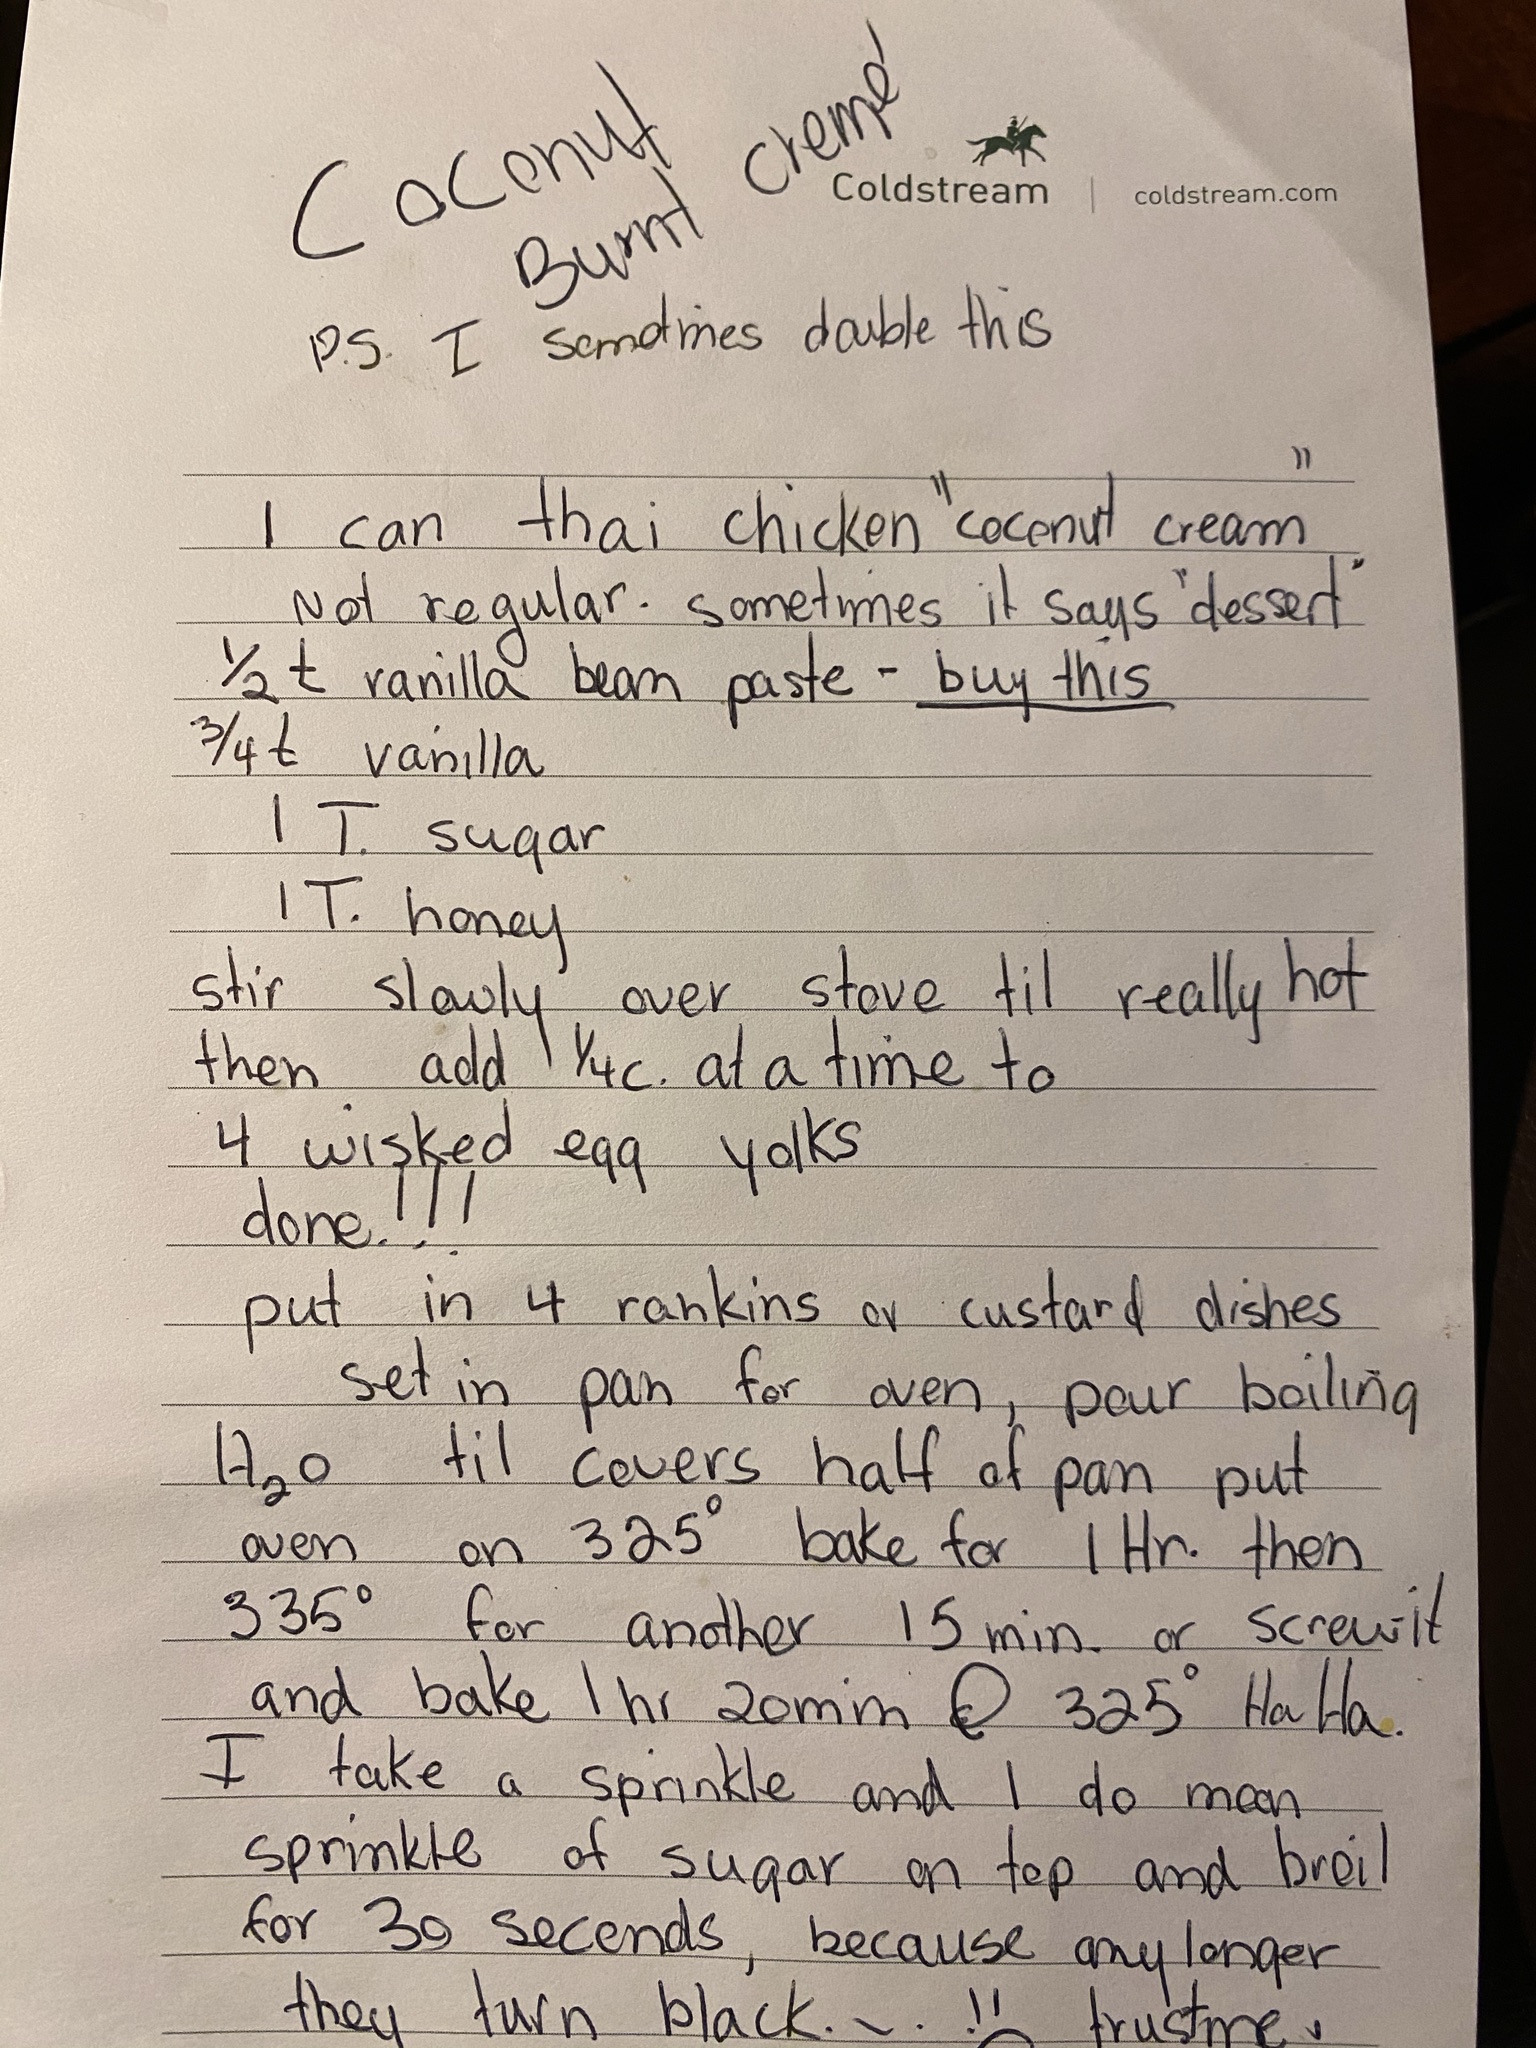 Coconut
Burnt Cremé
Coldstream | coldstream.com
P.S. I sometimes double this
1 can thai chicken "coconut cream"
Not regular. sometimes it says "dessert"
1/2 t vanilla bean paste - buy this
3/4 t vanilla
1 T. sugar
1 T. honey
stir slowly over stove til really hot
then add 1/4 c. at a time to
4 wisked egg yolks
done.!!!
put in 4 rankins or custard dishes
set in pan for oven, pour boiling
H₂O til covers half of pan put
oven on 325° bake for 1 Hr. then
335° for another 15 min. or screw it
and bake 1 hr 20 min @ 325° Ha Ha.
I take a sprinkle and I do mean
sprinkle of sugar on top and broil
for 30 seconds, because any longer
they turn black. ~. !! trust me.